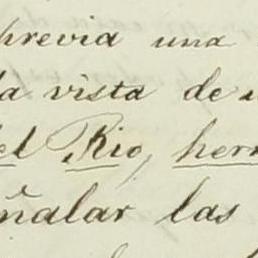 previa una
la vista de
el Rio, her
ñalar las